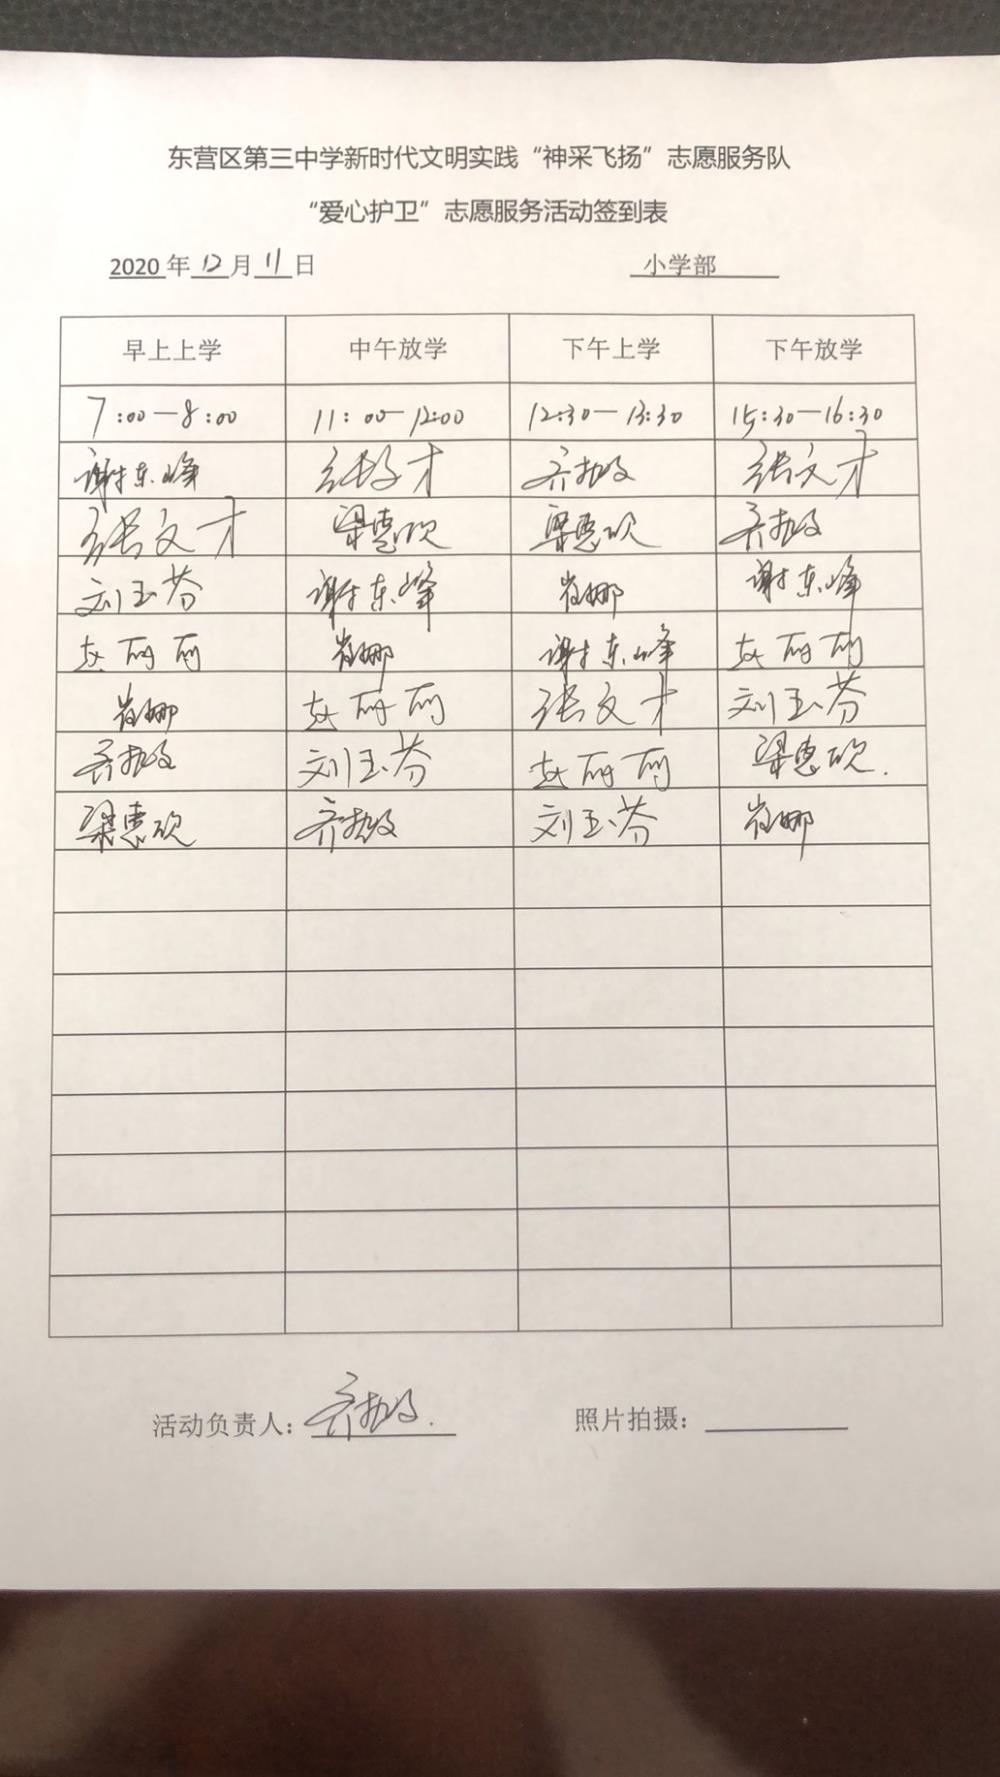 东营区第三中学新时代文明实践“神采飞扬”志愿服务队
“爱心护卫”志愿服务活动签到表
2020年12月11日 小学部
早上上学 中午放学 下午上学 下午放学
7:00—8:00 11:00—12:00 12:30—13:30 15:30—16:30
谢东峰 张文才 张文才
张文才 梁惠欣 梁惠欣
刘玉芬 谢东峰 崔娜 谢东峰
赵丽丽 崔娜 谢东峰 赵丽丽
崔娜 赵丽丽 张文才 刘玉芬
刘玉芬 赵丽丽 梁惠欣.
梁惠欣 刘玉芬 崔娜
活动负责人: 照片拍摄: